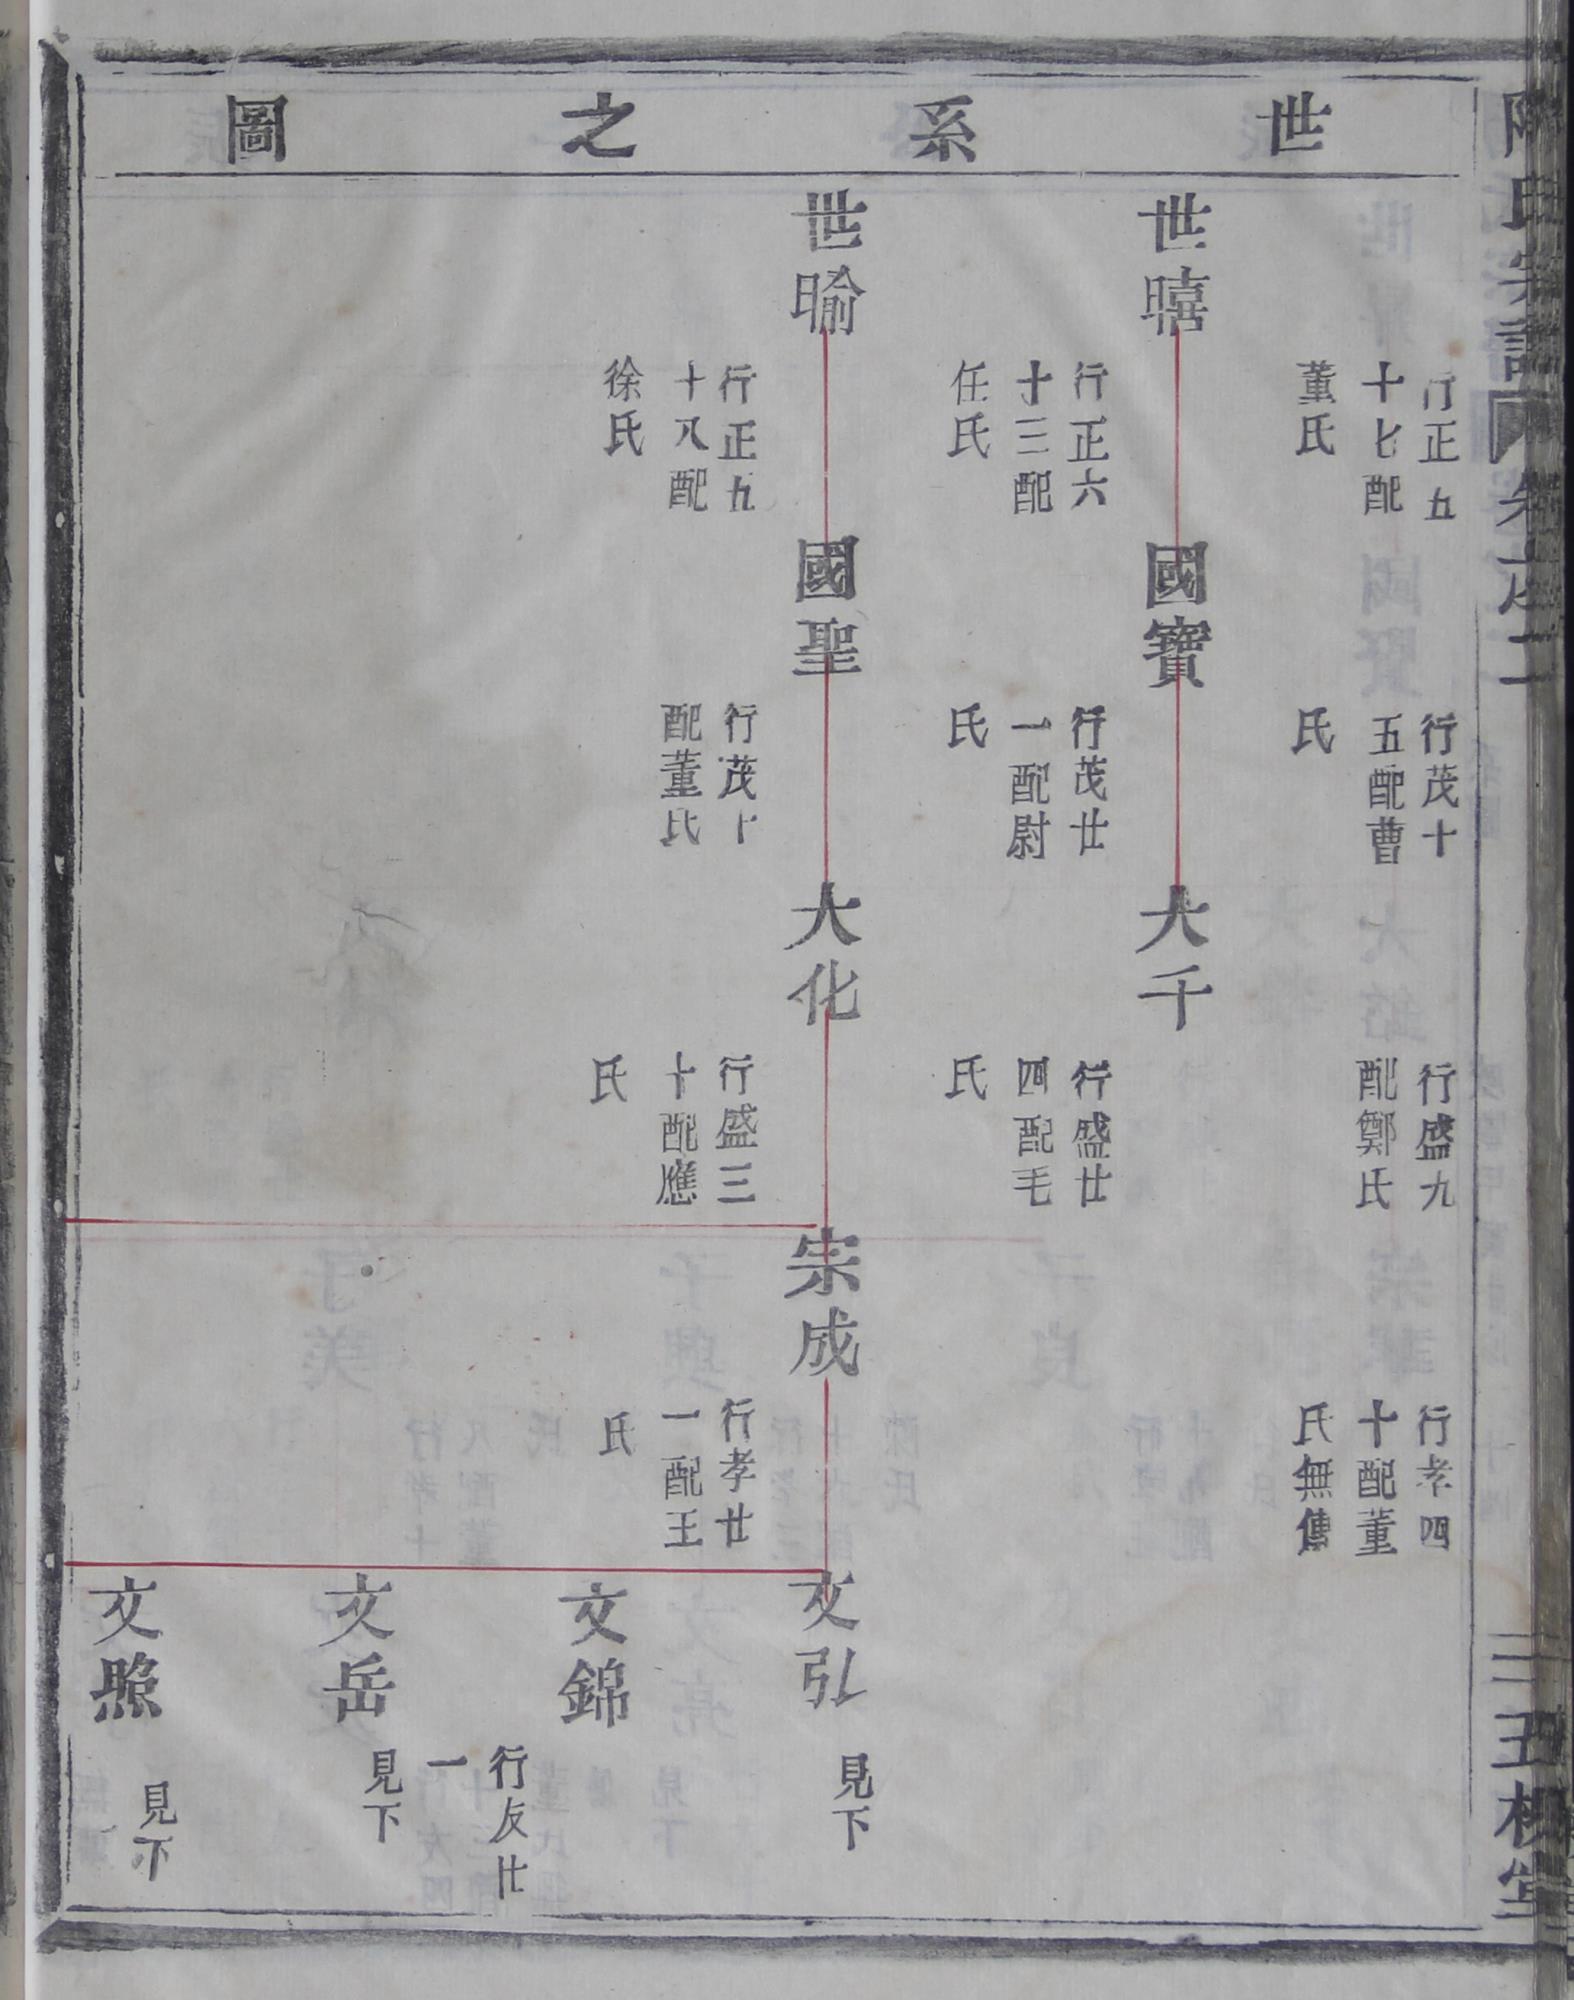 世系之圖
氏宗譜
二
行正五
十七配
董氏
行茂十
五配曹
氏
行盛九
配鄭氏
行孝四
十配董
氏無傳
世暿
行正六
十三配
任氏
國寶
行茂廿
一配尉
氏
大千
行盛廿
四配毛
氏
世喻
行正五
十八配
徐氏
國聖
行茂十
配董氏
大化
行盛三
十配應
氏
宗成
行孝廿
一配王
氏
文弘
見下
文錦
行友廿
一
文岳
見下
文照
見下